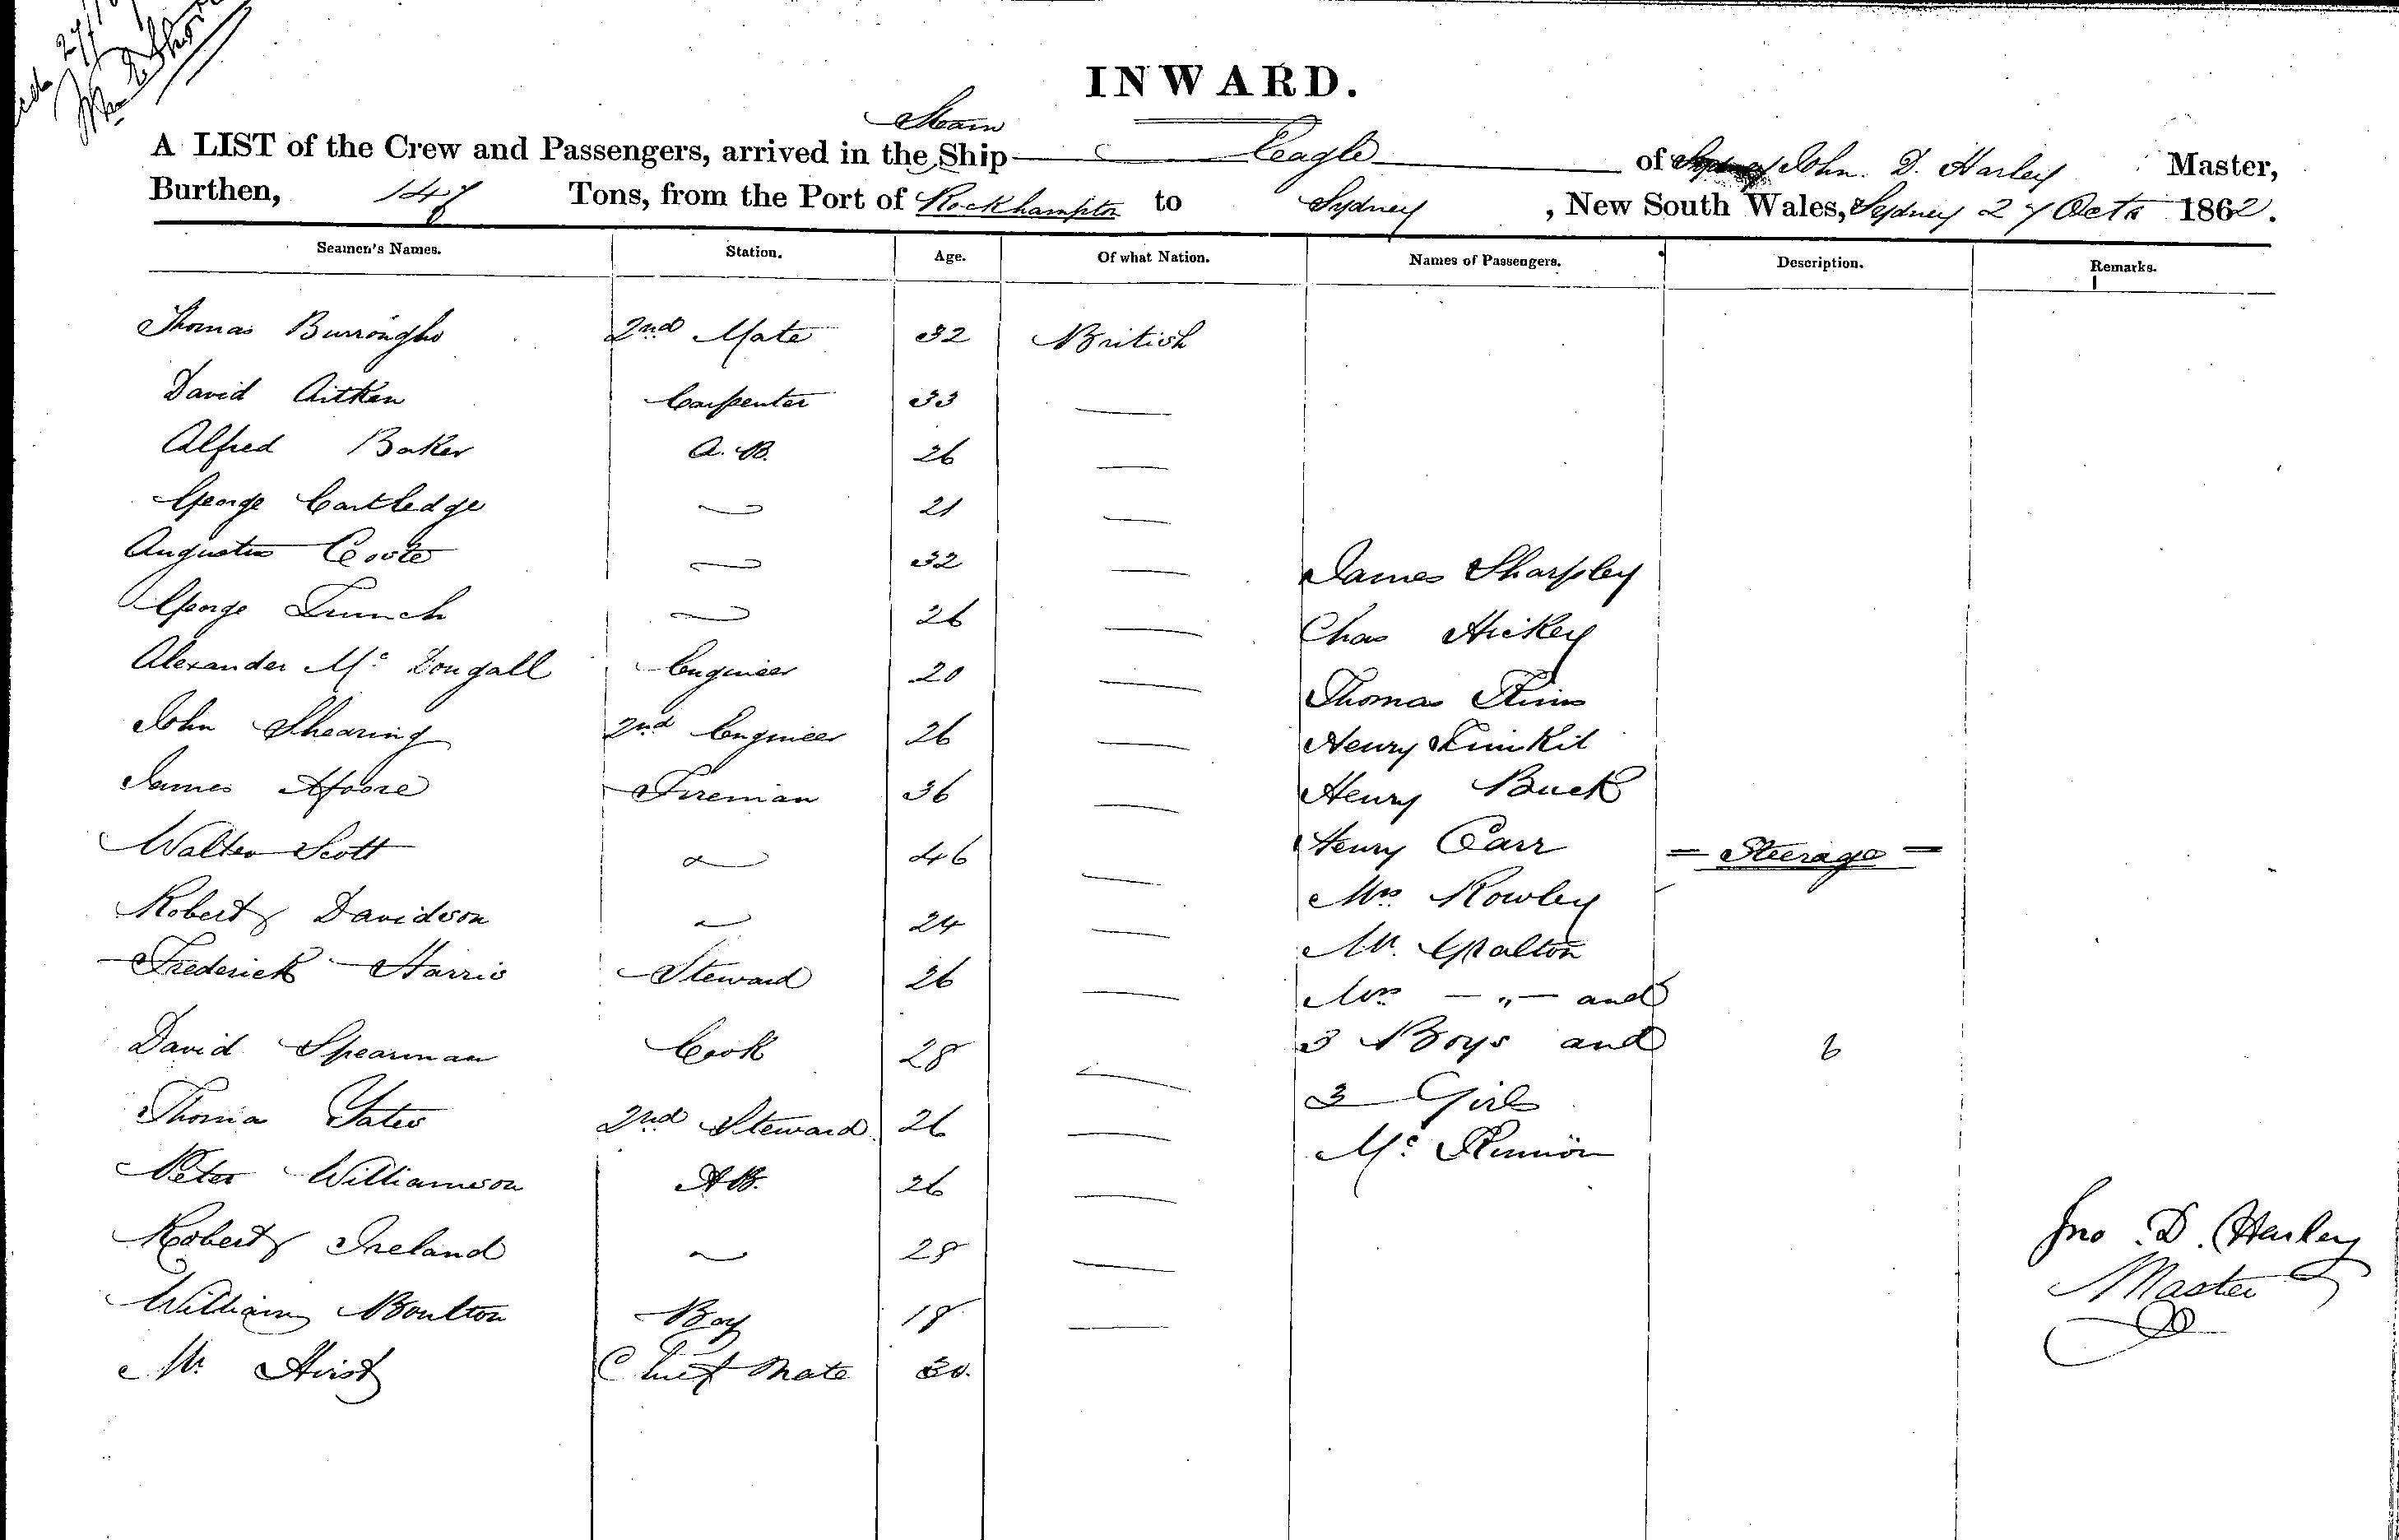 INWARD.
Steam
A LIST of the Crew and Passengers, arrived in the Ship Eagle of John. D. Harley Master,
Burthen, 147 Tons, from the Port of Rockhampton to Sydney, New South Wales, Sydney 27 Octr 1862.
Seamen's Names. Station. Age. Of what Nation. Names of Passengers. Description. Remarks.
Thomas Burroughs 2nd Mate 32 British
David Aitken Carpenter 33 —
Alfred Baker A.B. 26 —
George Cartledge — 21 —
Augustus Coote — 32 — James Sharpley
George — 26 — Chas Hickey
Alexander Mc Dougall Engineer 20 — Thomas
John Shearing 2nd Engineer 26 — Henry
James Moore Fireman 36 — Henry Buck
Walter Scott — 46 — Henry Carr = Steerage =
Robert Davidson — 24 — Mrs Rowley
Frederick Harris Steward 26 — Mr. Walton
Mrs — " — and
David Spearman Cook 28 — 3 Boys and 6
3 Girls
Thomas Yates 2nd Steward 26 — Mc
Peter Williamson AB. 26 —
Robert Ireland — 28 —
Jno. D. Harley
Master
William Boulton Boy 18 —
Mr. Hirst Chief Mate 30.